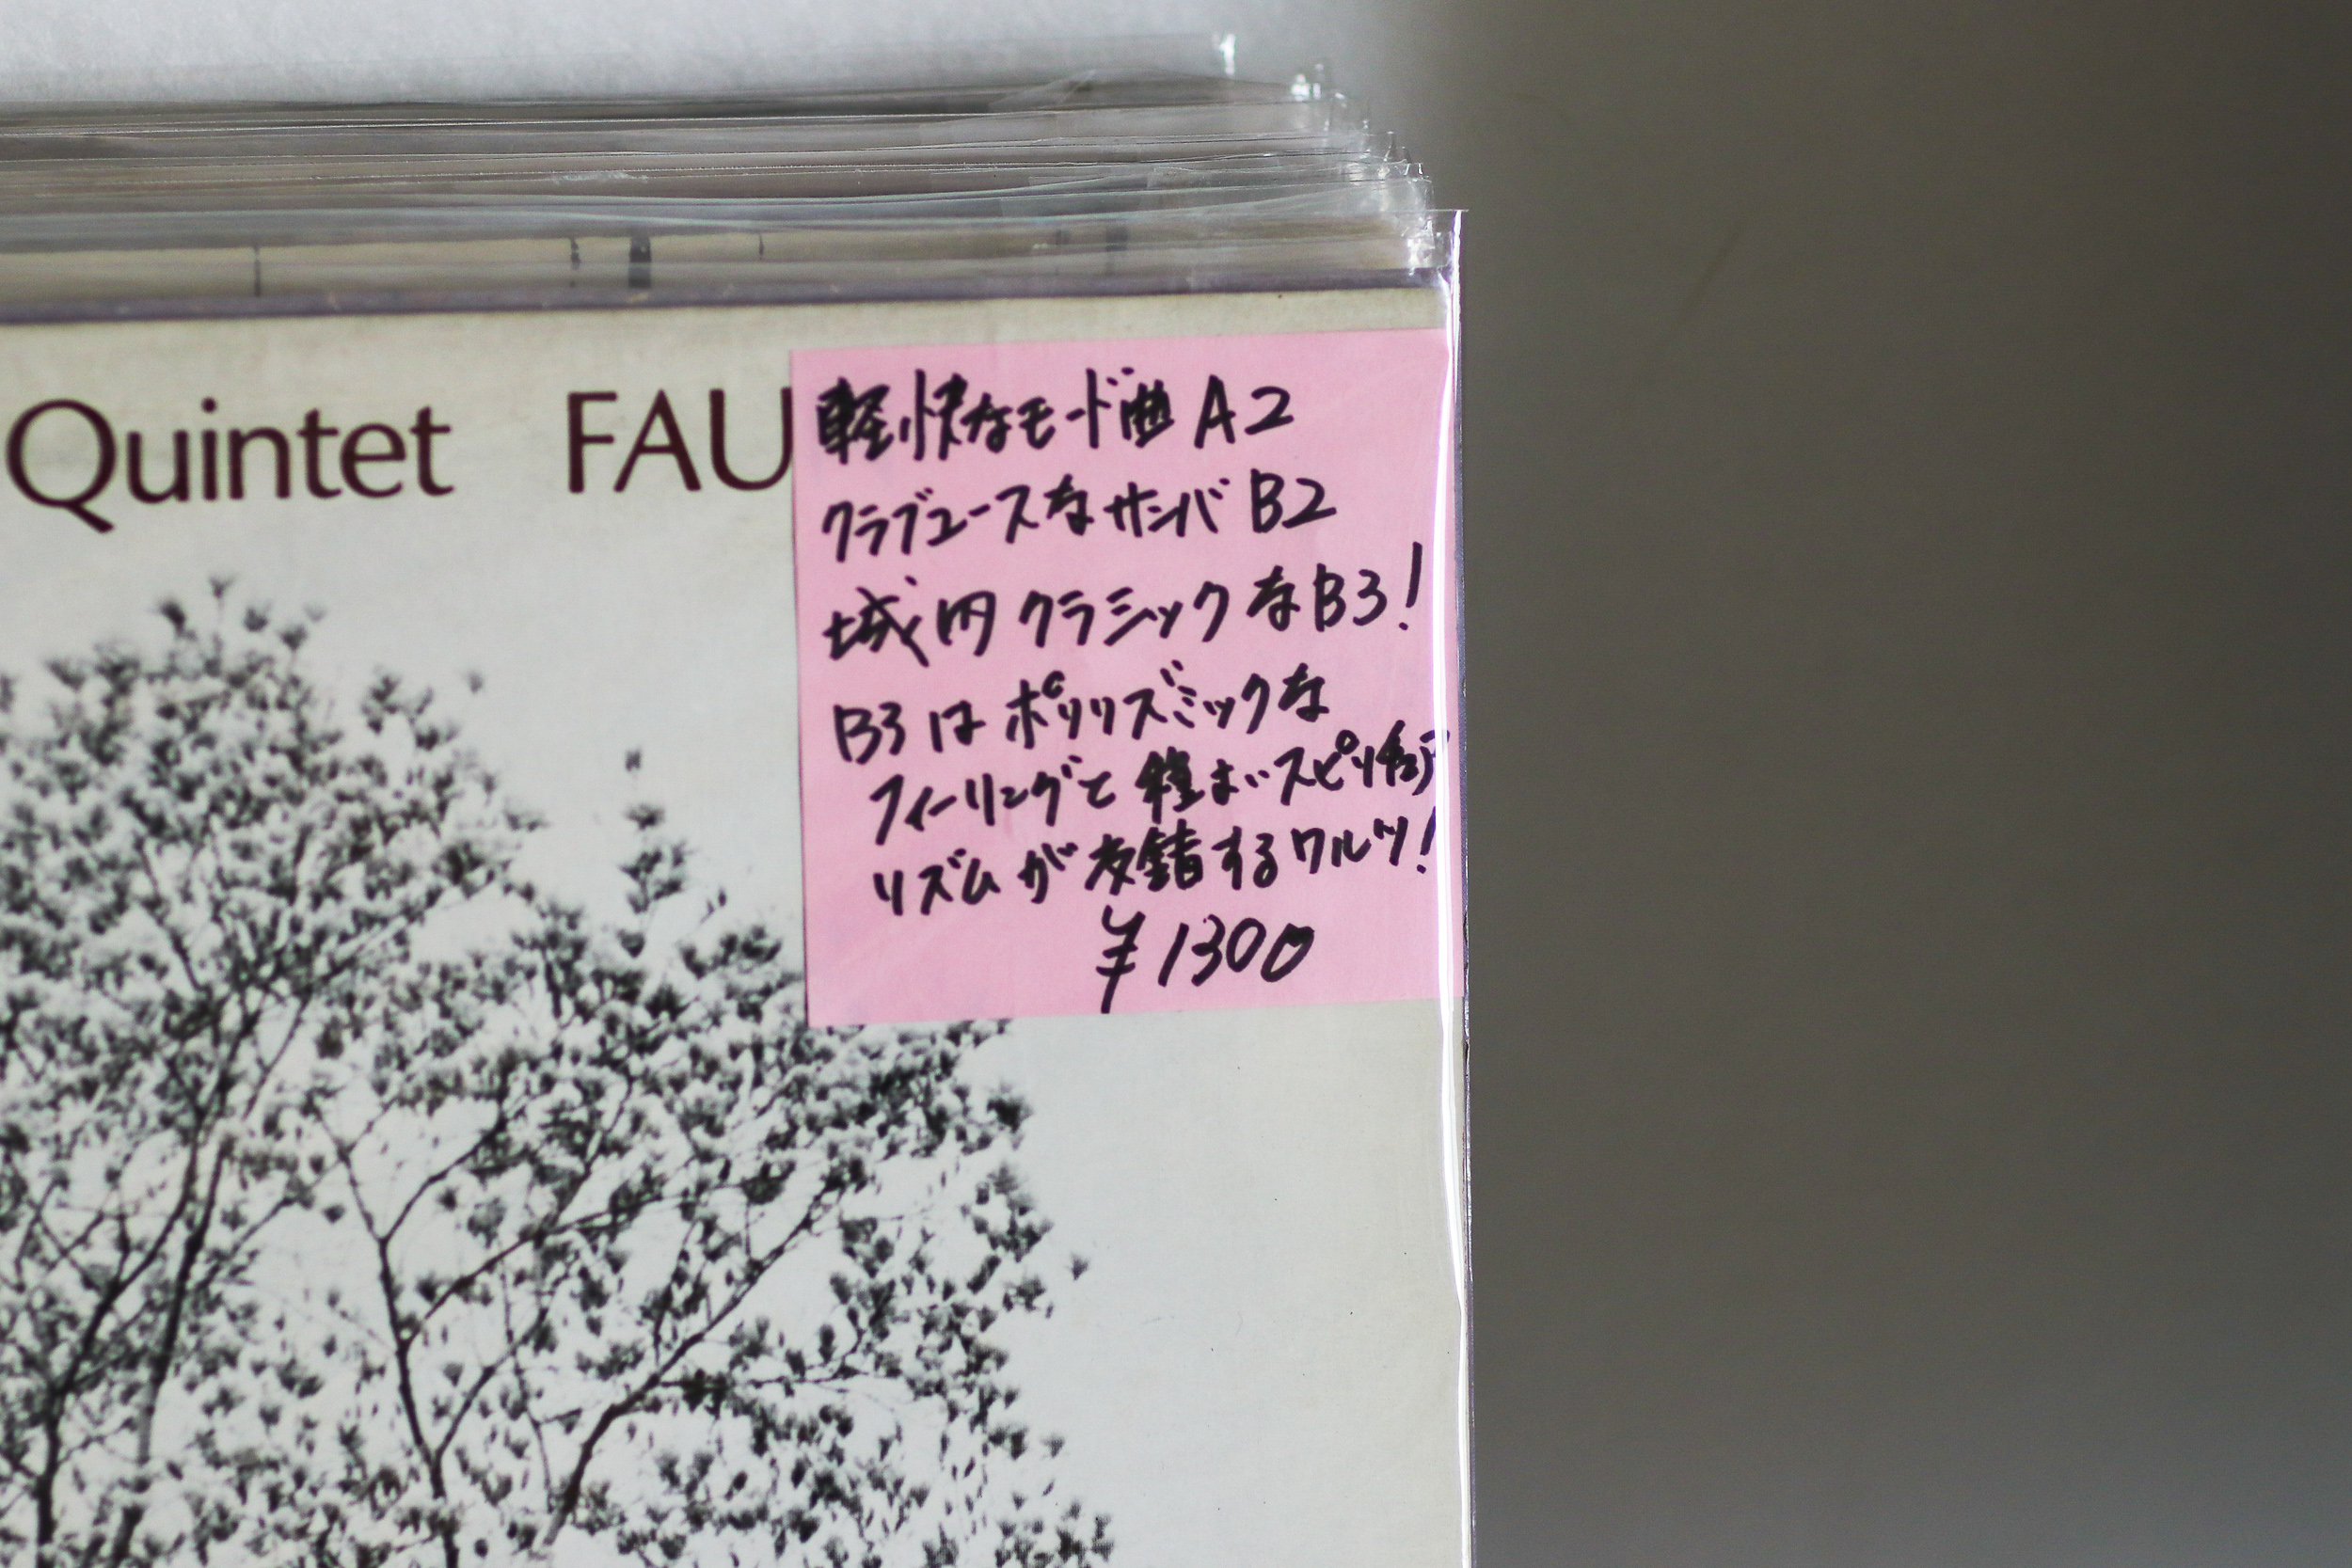 Quintet FAU
軽快なモード曲 A2
クラブユースなサンバ B2
城内クラシックなB3!
B3は ポリリズミックな
フィーリングと スピリチュア
リズムが交錯するワルツ!
¥1300